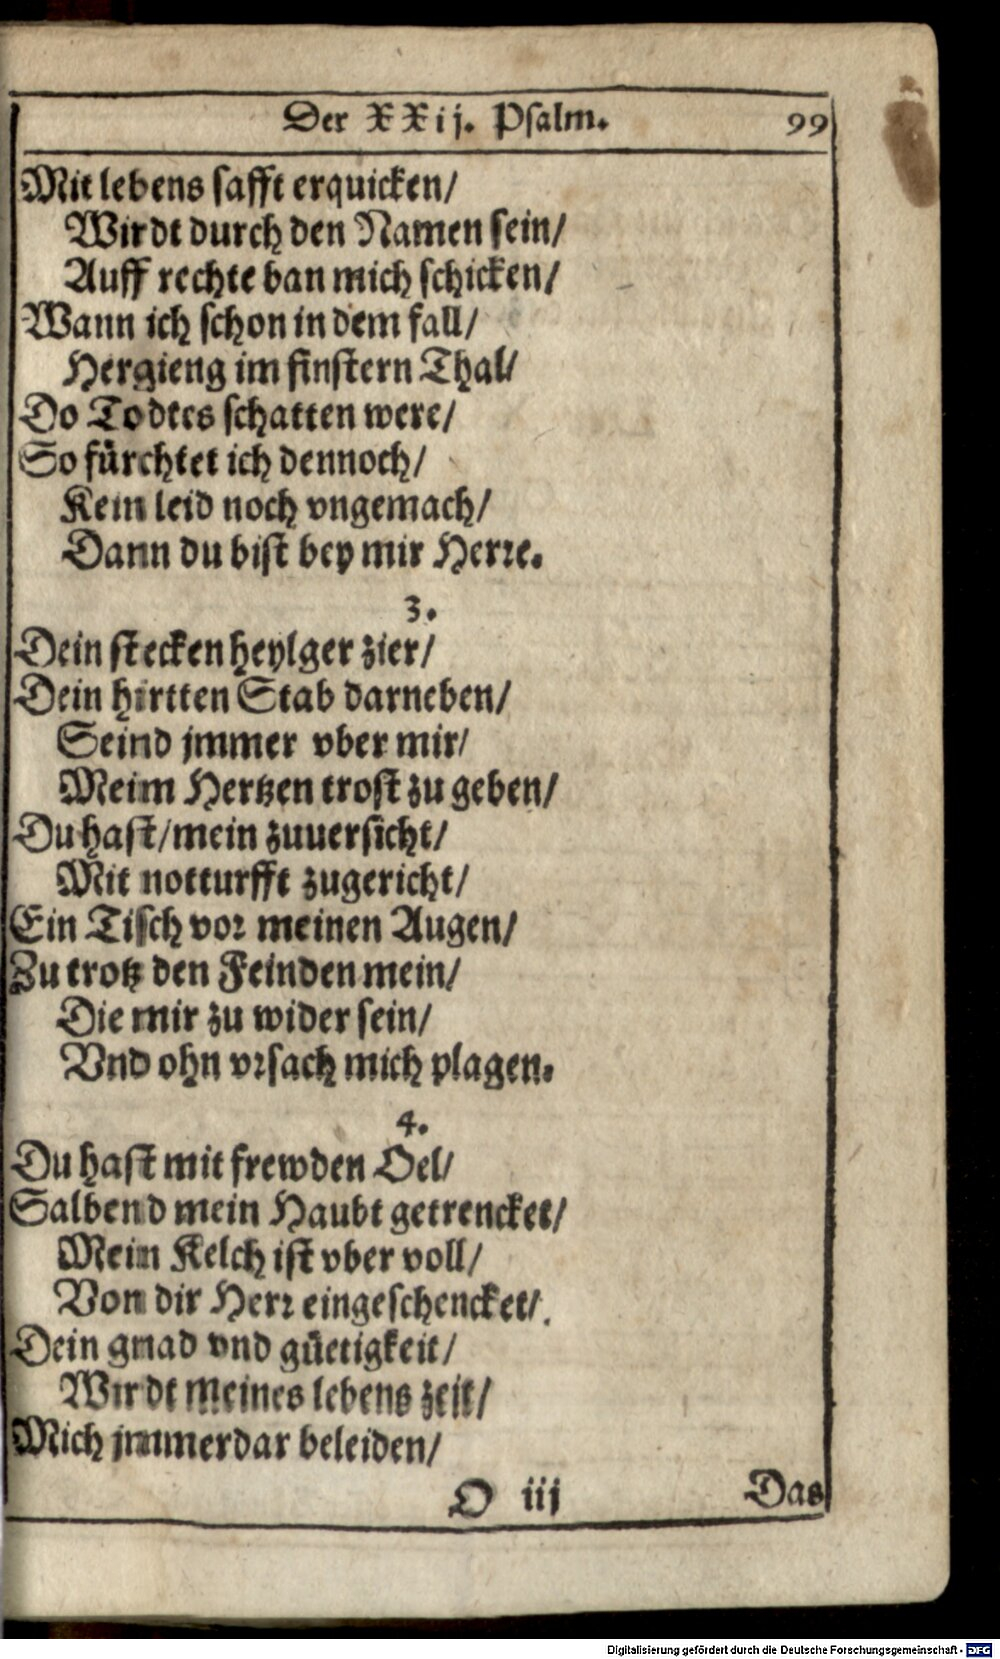 Der XXij. Psalm. 99
Mit lebens safft erquicken/
Wirdt durch den Namen sein/
Auff rechte ban mich schicken/
Wann ich schon in dem fall/
Hergieng im finstern Thal/
Do Todtes schatten were/
So fürchtet ich dennoch/
Kein leid noch vngemach/
Dann du bist bey mir Herre.
3.
Dein stecken heylger zier/
Dein hirtten Stab darneben/
Seind jmmer vber mir/
Meim Hertzen trost zu geben/
Du hast/mein zuuersicht/
Mit notturfft zugericht/
Ein Tisch vor meinen Augen/
Zu trotz den Feinden mein/
Die mir zu wider sein/
Vnd ohn vrsach mich plagen.
4.
Du hast mit frewden Oel/
Salbend mein Haubt getrencket/
Mein Kelch ist vber voll/
Von dir Herr eingeschencket/.
Dein gnad vnd güetigkeit/
Wirdt meines lebens zeit/
Mich jmmerdar beleiden/
O iij Das
Digitalisierung gefördert durch die Deutsche Forschungsgemeinschaft - DFG